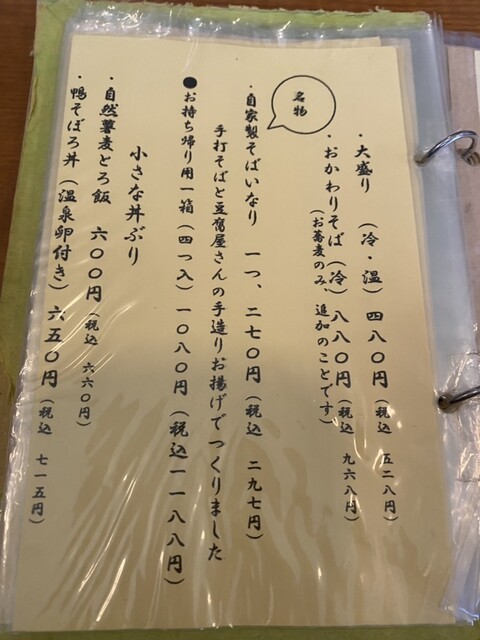 ・大盛り （冷・温） 四八〇円（税込 五二八円）
・おかわりそば（冷）八八〇円（税込 九六八円）
（お蕎麦のみ、追加のことです）
名物
・自家製そばいなり 一つ、二七〇円（税込 二九七円）
手打そばと豆腐屋さんの手造りお揚げでつくりました
●お持ち帰り用一箱（四つ入）一〇八〇円（税込一一八八円）
小さな丼ぶり
・自然薯麦とろ飯 六〇〇円（税込 六六〇円）
・鴨そぼろ丼（温泉卵付き）六五〇円（税込 七一五円）